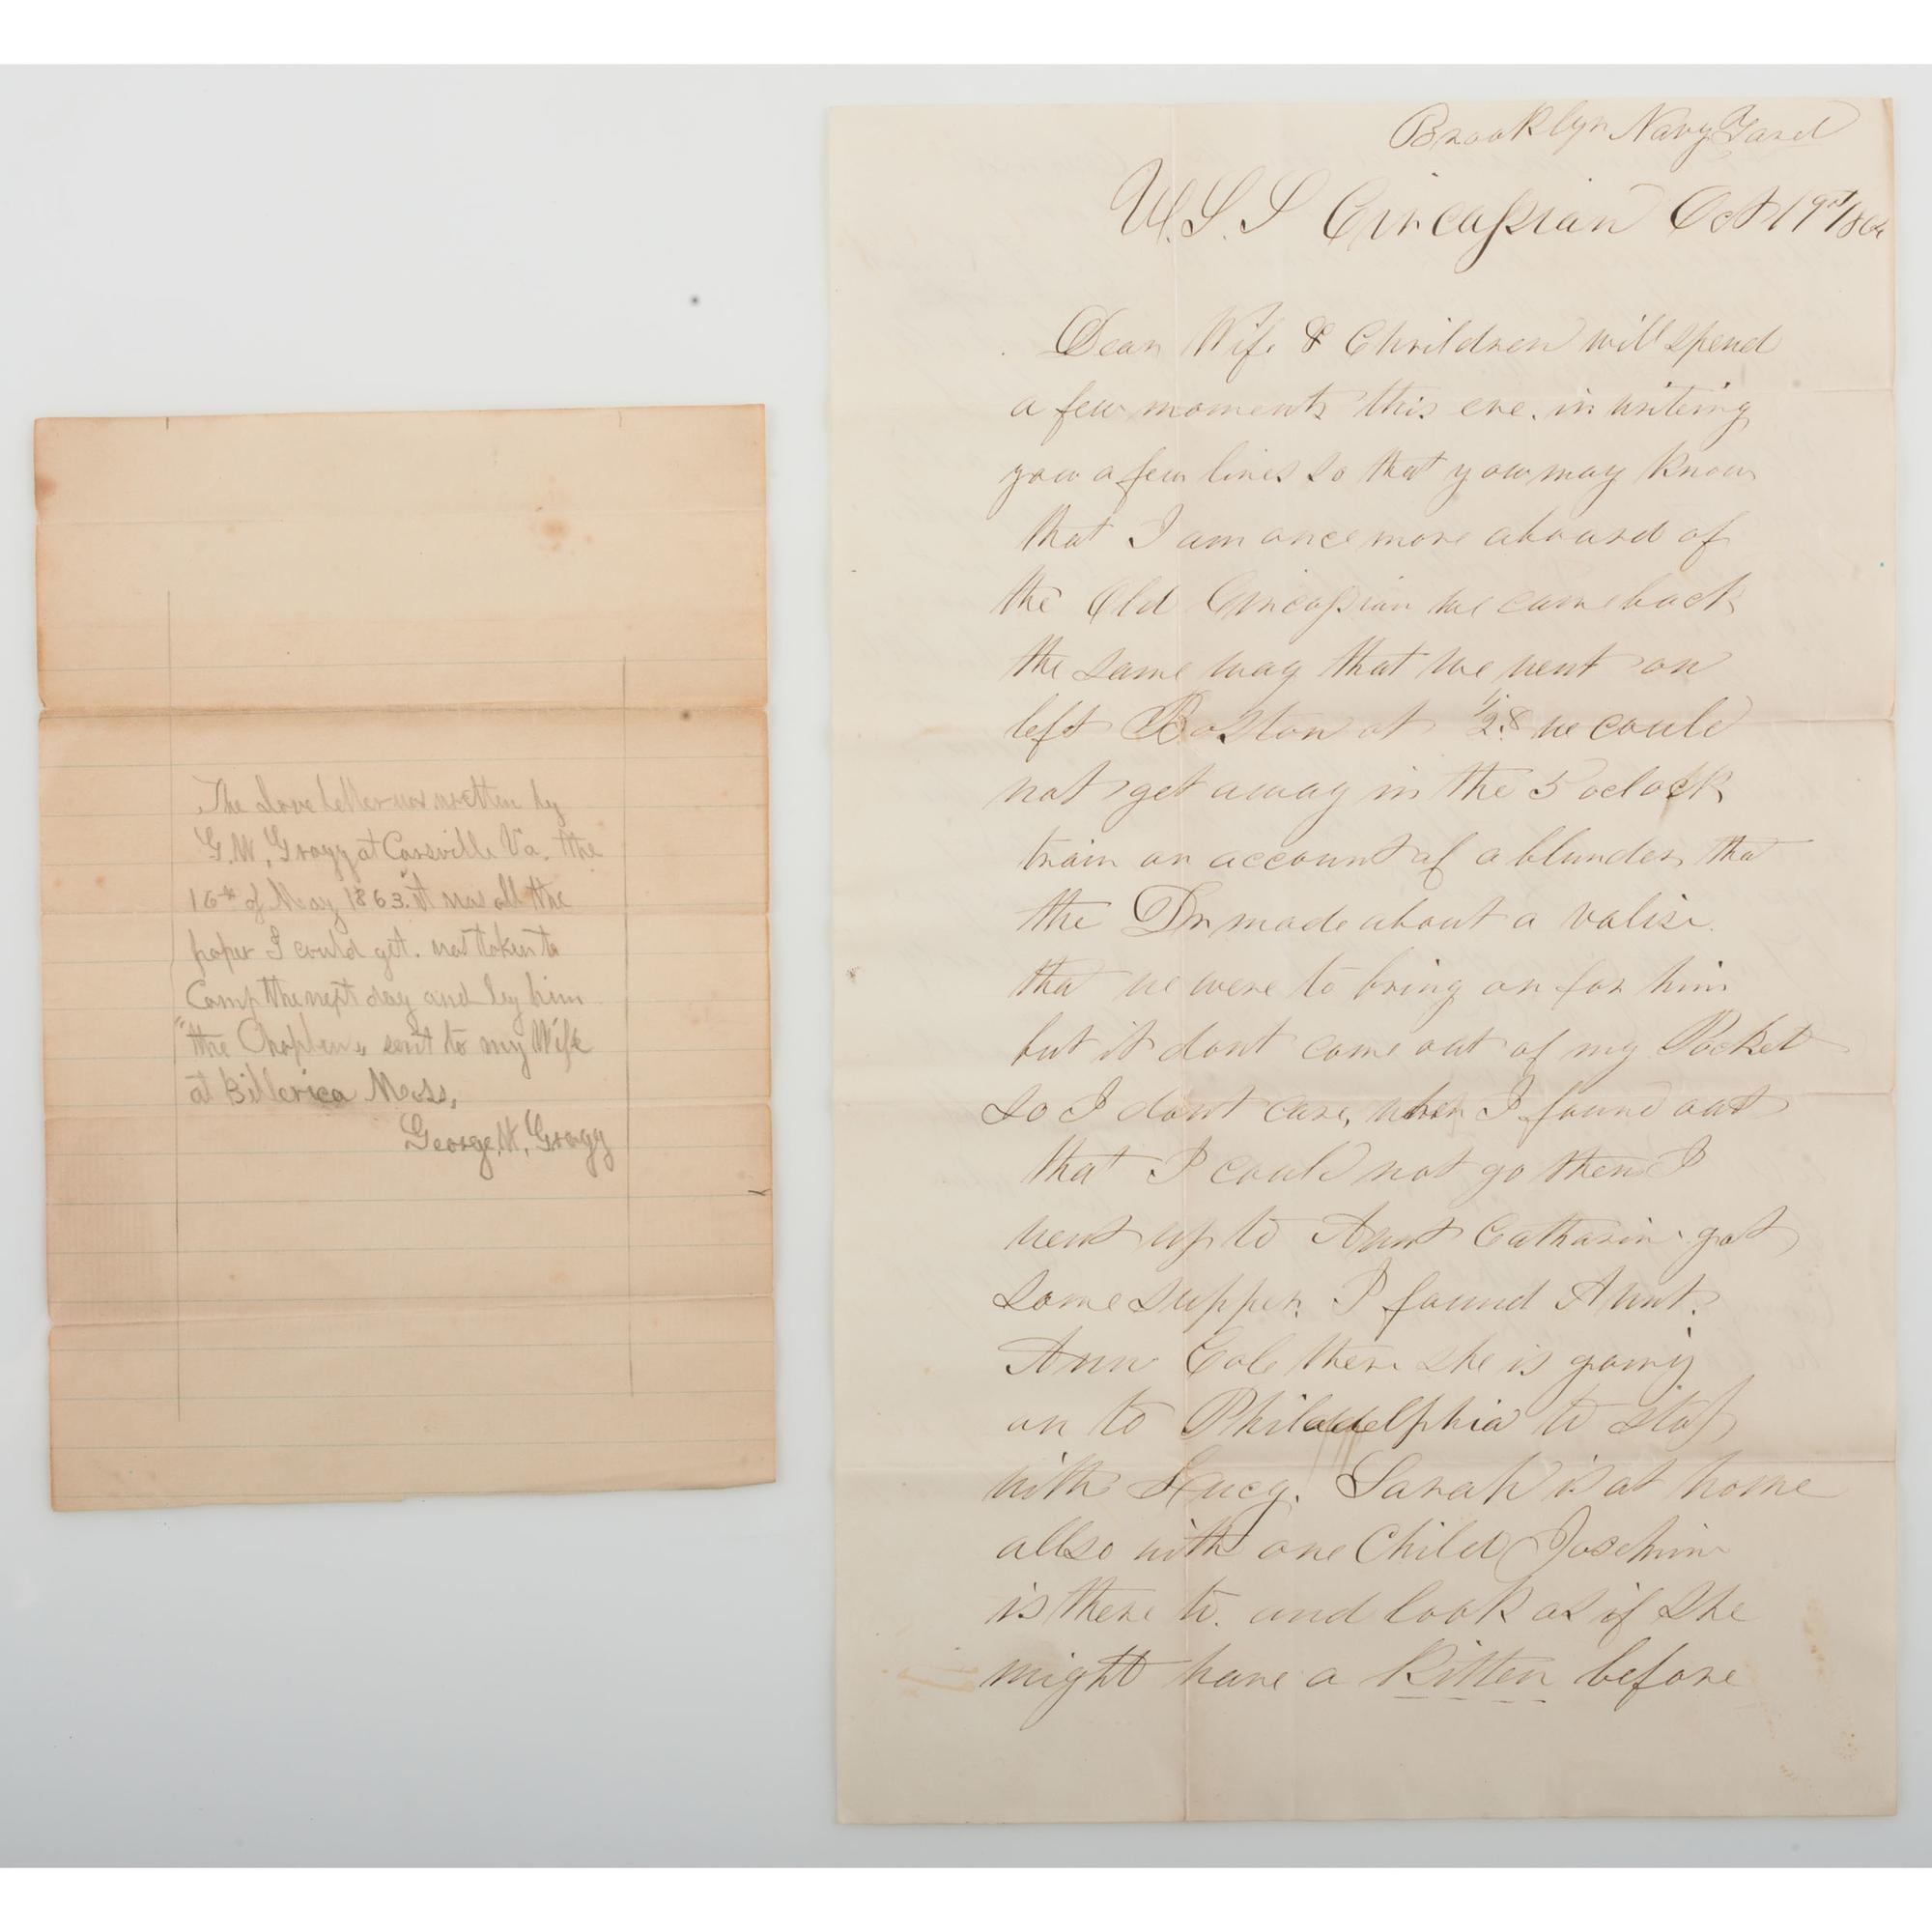 The Love letter was written by
G. W. Gragg at Carsville Va. the
16th of May 1863. It was all the
paper I could get. was taken to
Camp the next day and by him
"the Chaplin" sent to my Wife
at Billerica Mass,
George, W, Gragg
Brooklyn Navy Yard
U.S.S Circassian Oct 19th 1864
Dear Wife & Chrildren will spend
a few moments this eve. in writeing
you a few lines so that you may know
that I am once more aboard of
the Old Circassian we came back
the same way that we went on
left Boston at 1/2 8 we could
not get away in the 5 oclock
train on account of a blunder tha
the Dr made about a valise.
tha we were to bring on for him
but it dont come out of my Pocket
so I dont care, when I found out
that I could not go then I
went up to Aunt Catharin got
some supper. I found Aunt.
Ann Cole there she is going
on to Philadelphia to stop
with Lucy. Sarah is at home
allso with one Child
is there to. and look as if she
might have a Kitten before